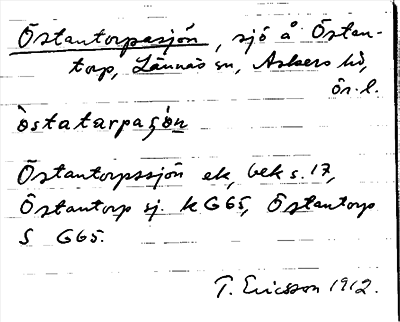 Östantorpasjön, sjö å Östan-
torp, Lännäs sn, Askers hd,
ör. l.
òstatarpaʂón
Östantorpssjön ek, bek s. 17,
Östantorp sj. k G65, Östantorp
S G65.
T. Ericsson 1912.